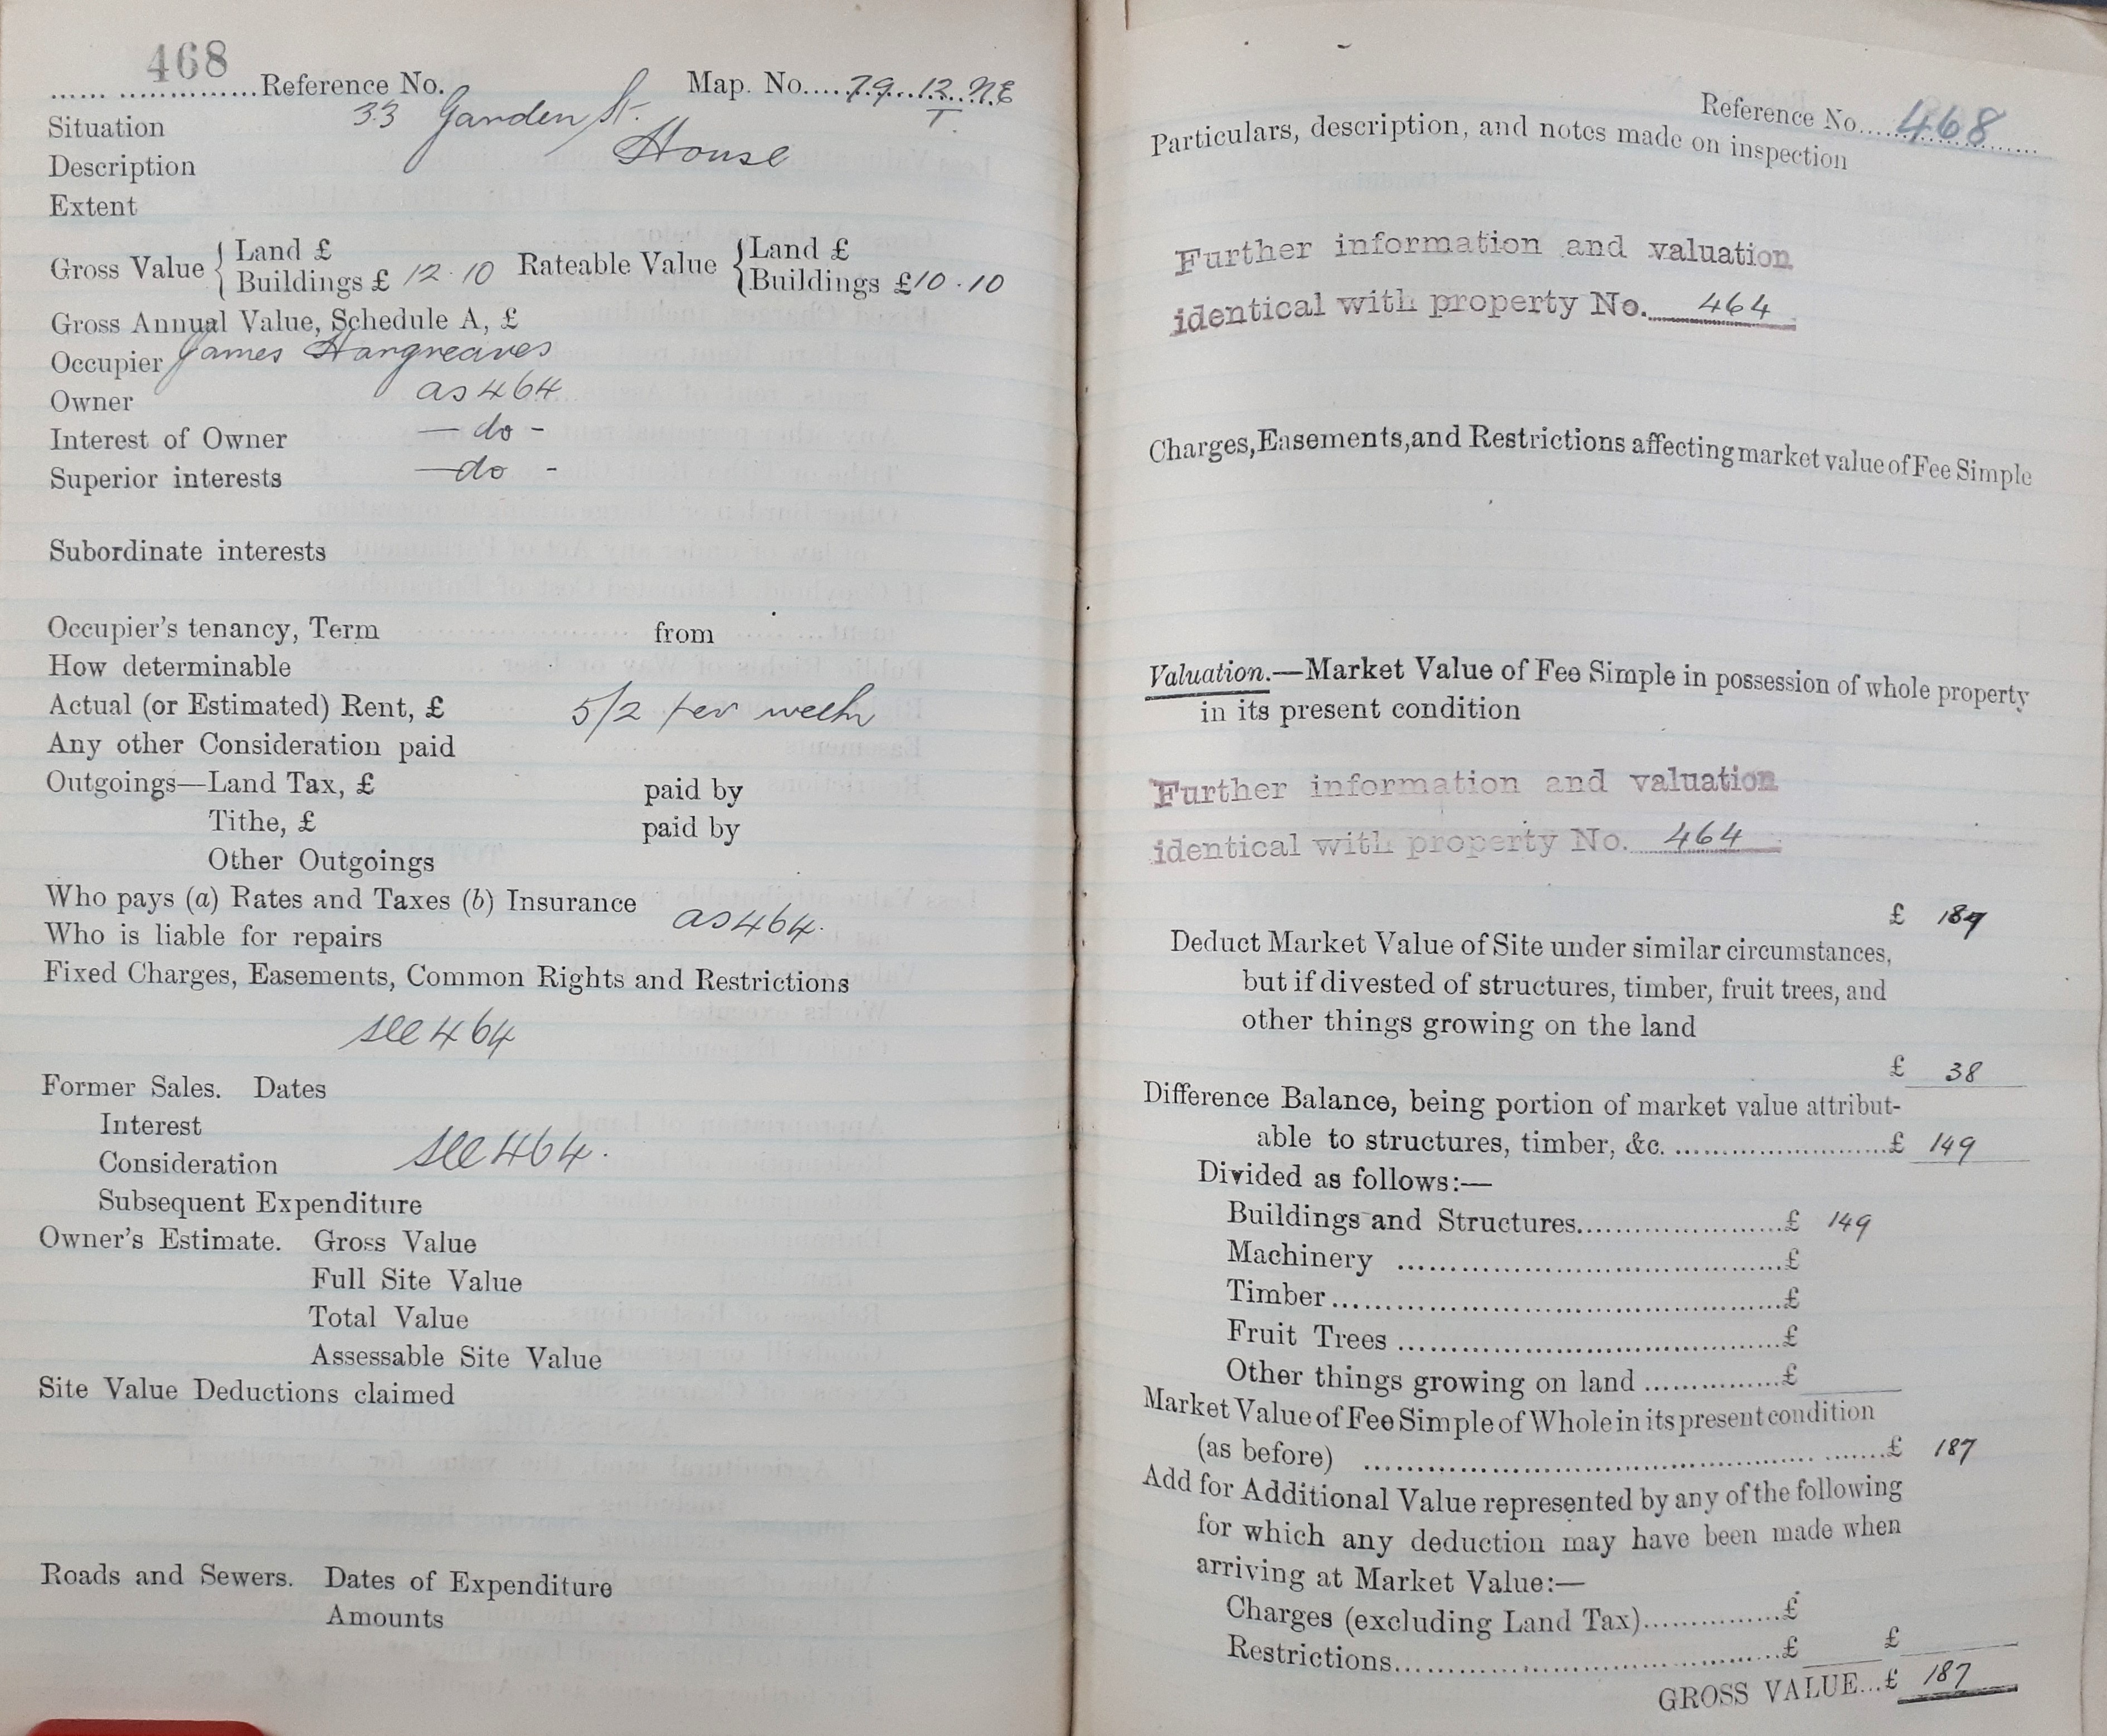 468
Reference No. Map. No. 79.12.NE
T
Situation 33 Garden St.
Description House
Extent
Gross Value { Land £ Rateable Value { Land £
Buildings £ 12.10 Buildings £10.10
Gross Annual Value, Schedule A, £
Occupier James Hargreaves
Owner as 464
Interest of Owner — do -
Superior interests — do -
Subordinate interests
Occupier's tenancy, Term from
How determinable
Actual (or Estimated) Rent, £ 5/2 per week
Any other Consideration paid
Outgoings—Land Tax, £ paid by
Tithe, £ paid by
Other Outgoings
Who pays (a) Rates and Taxes (b) Insurance as 464.
Who is liable for repairs
Fixed Charges, Easements, Common Rights and Restrictions
see 464
Former Sales. Dates
Interest
Consideration see 464.
Subsequent Expenditure
Owner's Estimate. Gross Value
Full Site Value
Total Value
Assessable Site Value
Site Value Deductions claimed
Roads and Sewers. Dates of Expenditure
Amounts
Reference No. 468
Particulars, description, and notes made on inspection
Further information and valuation
identical with property No. 464
Charges, Easements, and Restrictions affecting market value of Fee Simple
Valuation.—Market Value of Fee Simple in possession of whole property
in its present condition
Further information and valuation
identical with property No. 464
£ 187
Deduct Market Value of Site under similar circumstances,
but if divested of structures, timber, fruit trees, and
other things growing on the land
£ 38
Difference Balance, being portion of market value attribut-
able to structures, timber, &c. £ 149
Divided as follows:—
Buildings and Structures £ 149
Machinery £
Timber £
Fruit Trees £
Other things growing on land £
Market Value of Fee Simple of Whole in its present condition
(as before) £ 187
Add for Additional Value represented by any of the following
for which any deduction may have been made when
arriving at Market Value:—
Charges (excluding Land Tax) £
Restrictions £ £
GROSS VALUE... £ 187